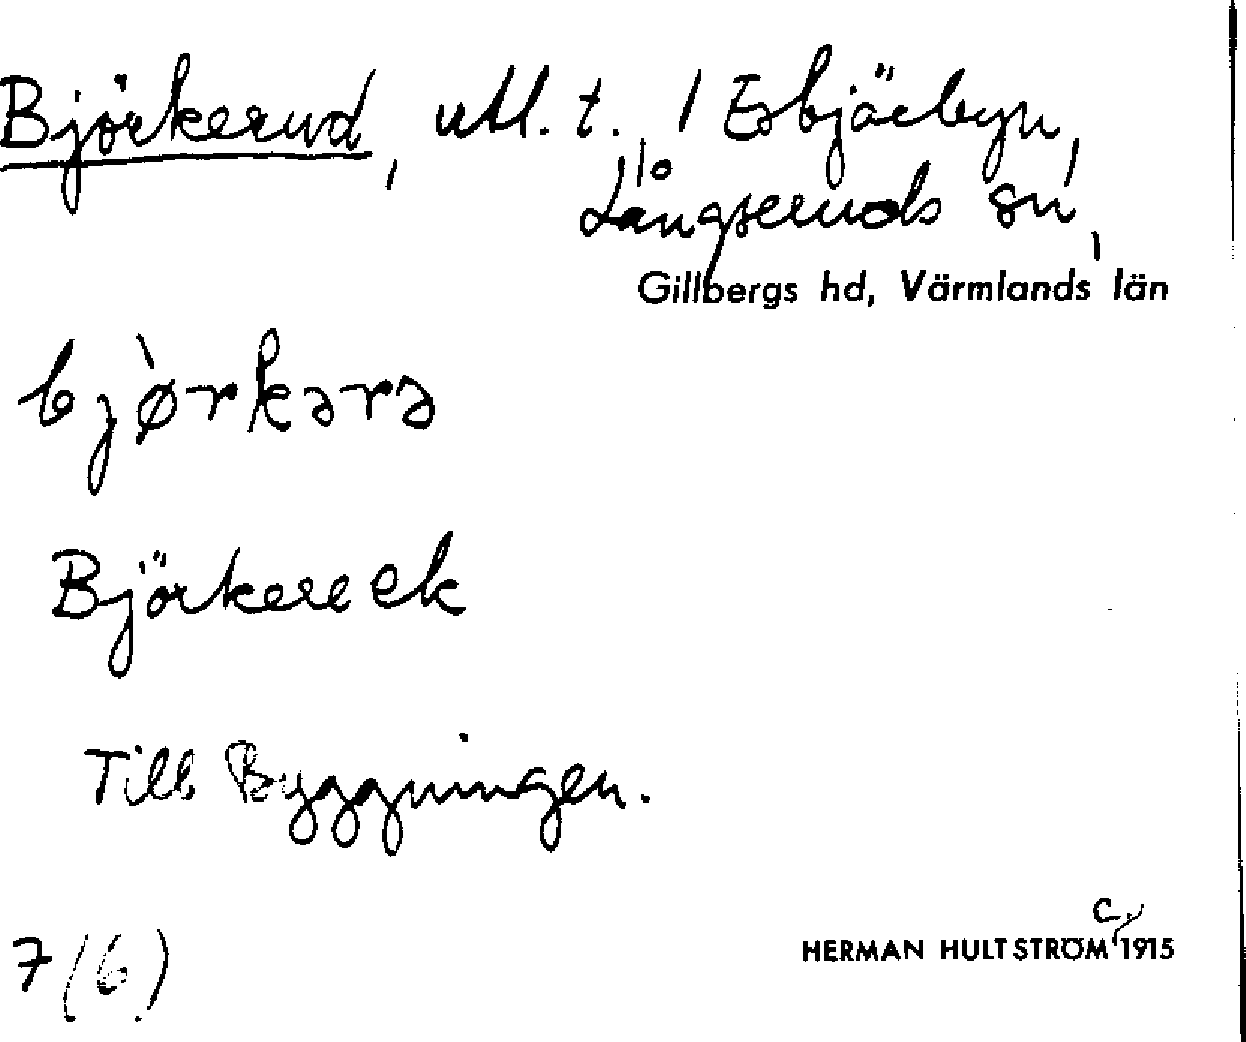 Björkerud, utl. t. 1 Esbjörbyn,
Långseruds sn,
Gillbergs hd, Värmlands län
bjø̀rkərə
Björkereek
Till Byggningen.
7 (6)
HERMAN HULTSTRÖM c. 1915